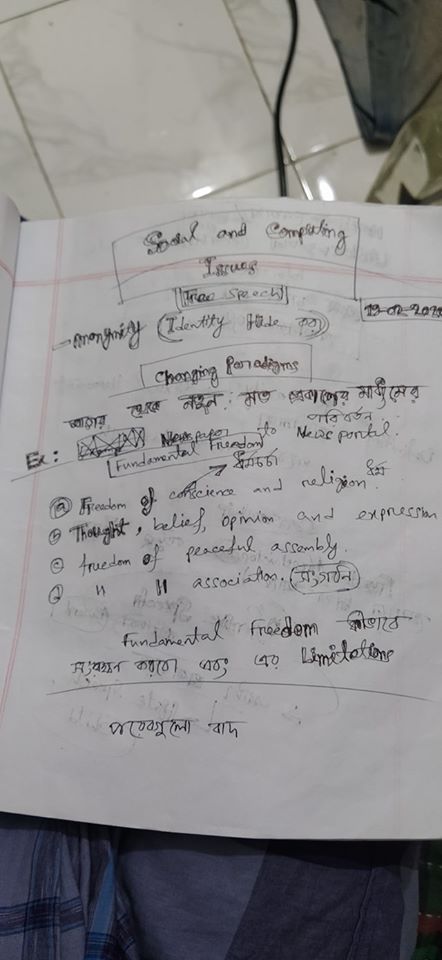 Social and Computing
Issues
Free Speech
→ Anonymity (Identity Hide করা)
Changing Paradigms
থেকে নতুন : মত প্রকাশের মাধ্যমের
পরিবর্তন
Ex: Newspaper to News portal.
Fundamental Freedom
→ ধর্মচর্চা
ⓐ Freedom of conscience and religion. ধর্ম
ⓑ Thought, belief, opinion and expression
ⓒ freedom of peaceful assembly.
ⓓ " " association. (সংগঠন)
Fundamental Freedom কীভাবে
করবো এবং এর Limitations
পরেরগুলো বাদ